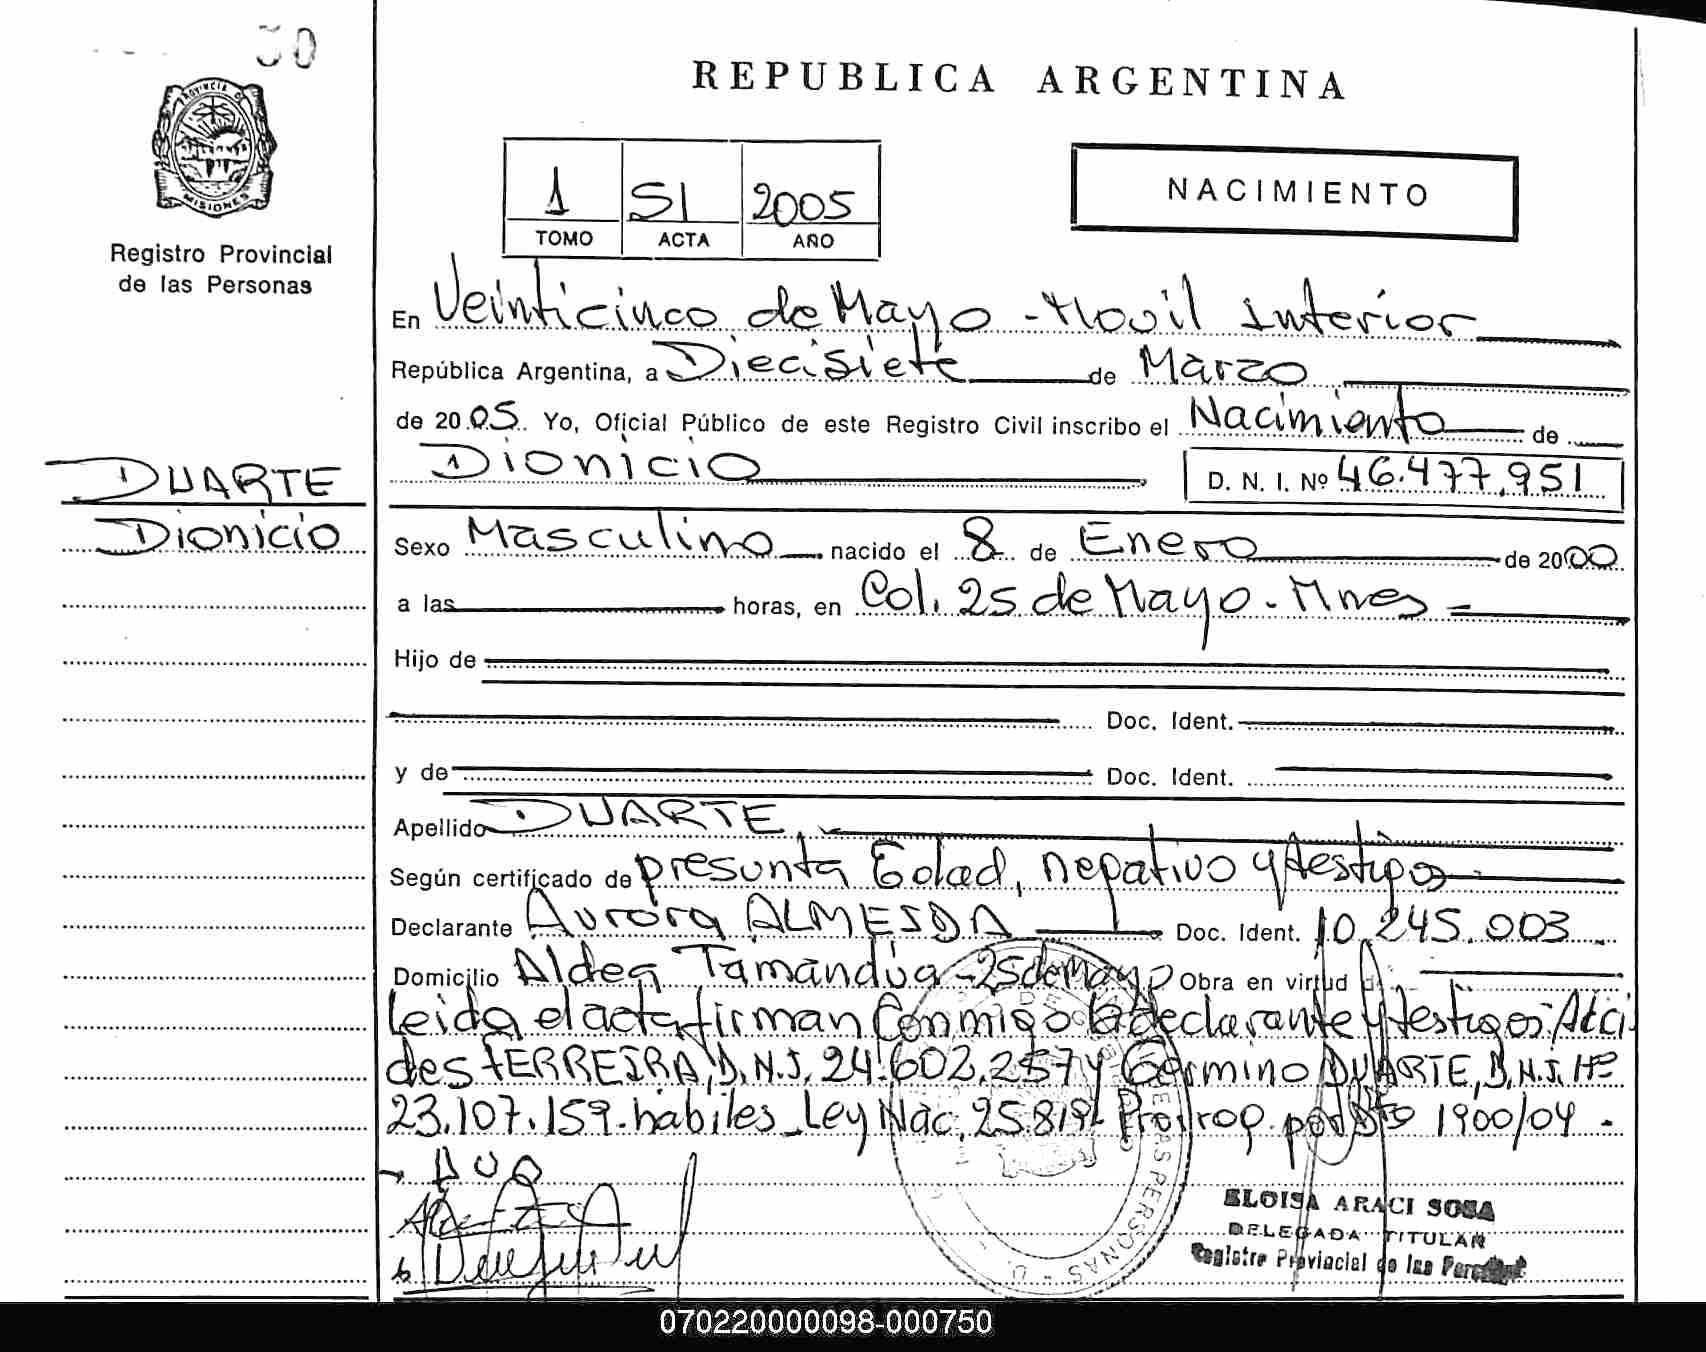 30
REPUBLICA ARGENTINA
PROVINCIA DE
MISIONES
Registro Provincial
de las Personas
1 51 2005
TOMO ACTA AÑO
NACIMIENTO
En Veinticinco de Mayo - Movil Interior
República Argentina, a Diecisiete de Marzo
de 2005. Yo, Oficial Público de este Registro Civil inscribo el Nacimiento de
Dionicio D. N. I. Nº 46.477.951
DUARTE
Dionicio
Sexo Masculino nacido el 8 de Enero de 2000
a las horas, en Col. 25 de Mayo - Mnes
Hijo de
Doc. Ident.
y de Doc. Ident.
Apellido DUARTE
Según certificado de presunta Edad, negativo y testigos
Declarante Aurora ALMEIDA Doc. Ident. 10.245.003
Domicilio Aldea Tamandúa - 25 de Mayo Obra en virtud
Leida el acta firman Conmigo la declarante y testigos: Alci
des FERREIRA, D.N.I. 24.602.257 y Germino DUARTE, D.N.I. Nº
23.107.159 - habiles - Ley Nac. 25.819 - Prorrog. por Dto 1900/04 -
ELOISA ARACI SOSA
DELEGADA TITULAR
Registro Provincial de las Personas
070220000098-000750